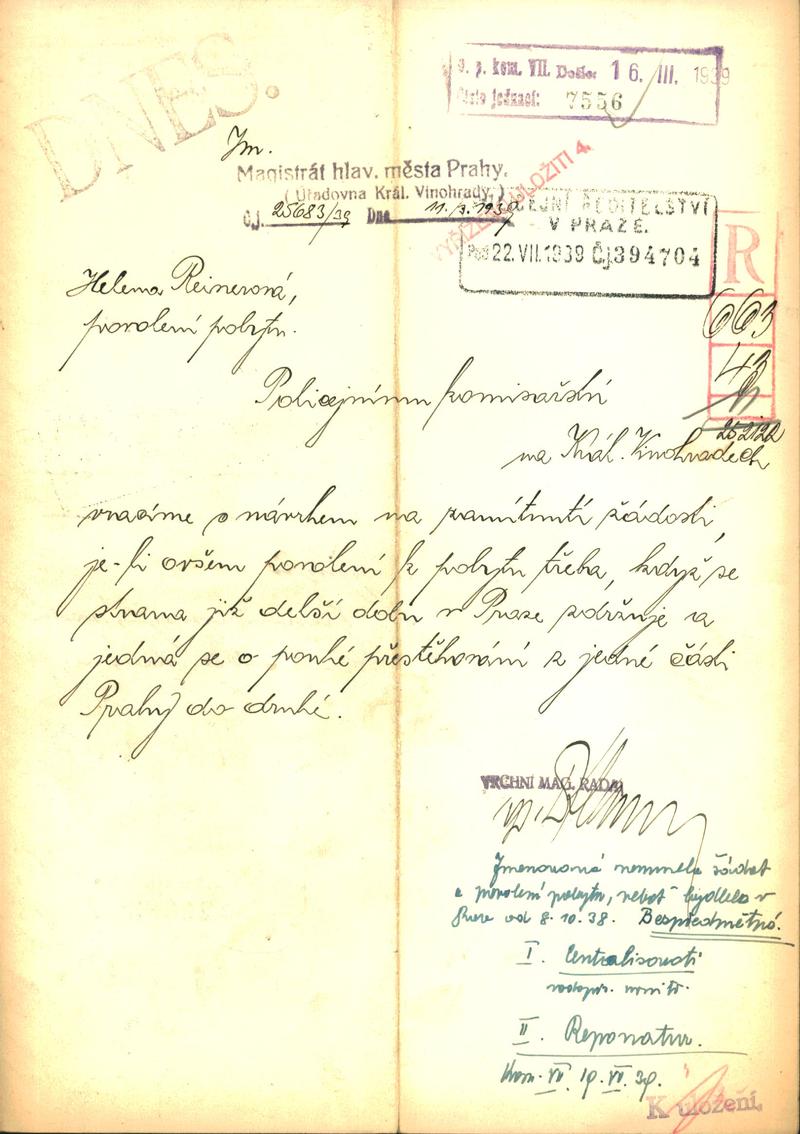 DNES.
P. p. kom. VII. Došlo: 16. III. 1939
Číslo jednací: 7556
Im.
Magistrát hlav. města Prahy.
( Úřadovna Král. Vinohrady. )
Čj. 25683/39 Dne 11./3.1939
VYŘÍZENO ULOŽITI 4.
ŘEDITELSTVÍ
V PRAZE.
22.VII.1939 Čj 394704
R
663
43
Helena Reinerová,
povolení pobytu.
Policejnímu komisařství
na Král. Vinohradech
vracíme s návrhem na zamítnutí žádosti,
je-li ovšem povolení k pobytu třeba, když se
strana již delší dobu v Praze zdržuje a
jedná se o pouhé přestěhování z jedné části
Prahy do druhé.
VRCHNÍ MAG. RADA
Jmenovaná nemusela žádat
o povolení pobytu, neboť bydlela v
Praze od 8.10.38. Bezpředmětné.
I. Centralisovati
II. Reponatur.
Kom. VII 19. VII. 39.
K uložení.